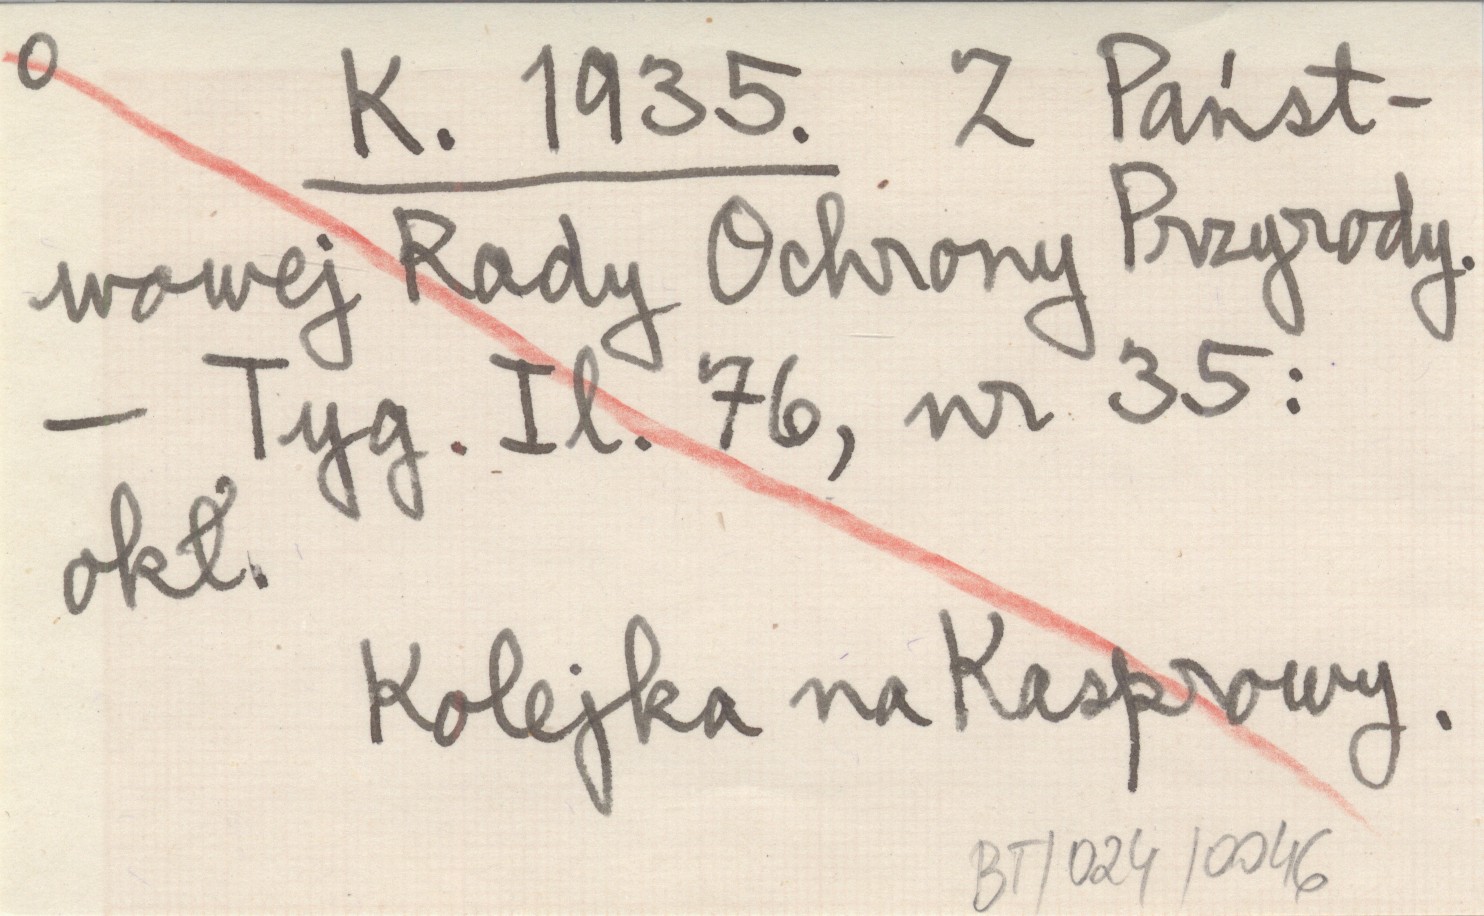 o K. 1935. Z Państ-
wowej Rady Ochrony Przyrody.
- Tyg. Il. 76, nr 35:
okł.
Kolejka na Kasprowy.
BT/024/0046